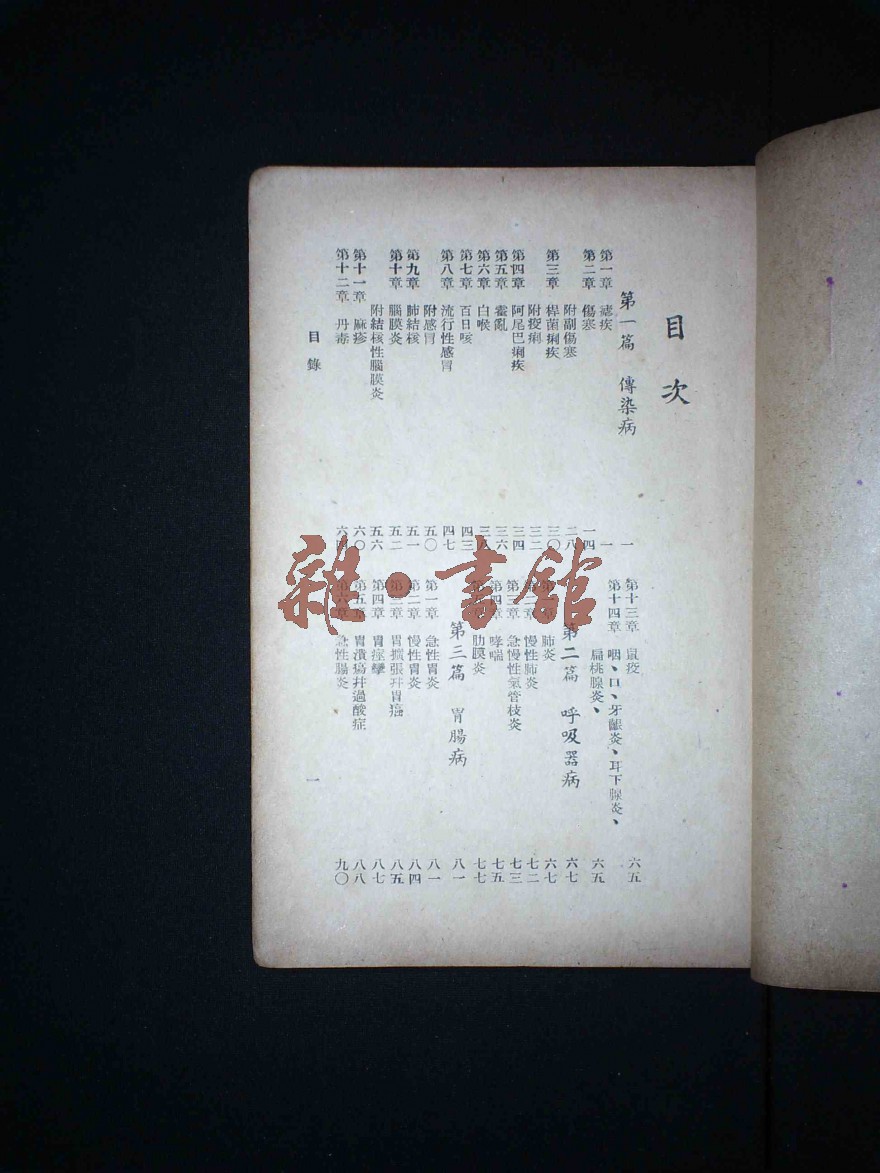 目次
第一篇 傳染病 一
第一章 瘧疾 一
第二章 傷寒 一四
附副傷寒 二八
第三章 桿菌痢疾 三〇
附疫痢 三二
第四章 阿尾巴痢疾 三四
第五章 霍亂 三六
第六章 白喉
第七章 百日咳 四三
第八章 流行性感冒 四七
附感冒 五〇
第九章 肺結核 五一
第十章 腦膜炎 五二
附結核性腦膜炎 五六
第十一章 麻疹 六〇
第十二章 丹毒 六四
第十三章 鼠疫 六五
第十四章 咽、口、牙齦炎、耳下腺炎、
扁桃腺炎、 六五
第二篇 呼吸器病 六七
第一章 肺炎 六七
第二章 慢性肺炎 七二
第三章 急慢性氣管枝炎 七三
第四章 哮喘 七五
肋膜炎 七七
第三篇 胃腸病 八一
第一章 急性胃炎 八一
第二章 慢性胃炎 八四
第三章 胃擴張幷胃癌 八五
第四章 胃痙攣 八七
第五章 胃潰瘍幷過酸症 八八
第六章 急性腸炎 九〇
目錄
一
雜·書館